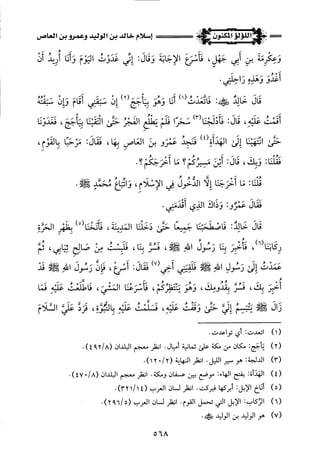 اللؤلؤ المكنون
إسلام خالد بن الوليد وعمرو بن العاص
وعكرمة بن أبي جهل، فأسرع الإجابة وقال: إني غدوت اليوم وأنا أريد أن
أغدو وهذه راحلتي.
قال خالد: فاتعدت(١) أنا وهو بيأجج(٢) إن سبقني أقام وإن سبقته
أقمت عليه، قال: فأدلجنا(٣) سحرا فلم يطلع الفجر حتى التقينا بيأجج، فغدونا
حتى انتهينا إلى الهدأة(٤) فنجد عمرو بن العاص بها، فقال: مرحبا بالقوم،
فقلنا: وبك، قال: أين مسيركم؟ قلنا: ما أخرجك؟
قلنا: الدخول في الإسلام، واتباع محمد ﷺ.
قال عمرو: وذاك الذي أقدمني.
قال خالد: فاصطحبنا جميعا حتى دخلنا المدينة، فأنخنا(٥) بظهر الحرة
ركابنا(٦)، فأخبر بنا رسول الله ﷺ، فسر بنا، فلبست من صالح ثيابي، ثم
عمدت إلى رسول الله ﷺ فلقيني أخي(٧) فقال: أسرع، فإن رسول الله ﷺ قد
أخبر بك، فسر بقدومك، وهو ينتظركم، فأسرعت المشي، فاطلعت عليه فما
زال ﷺ يتبسم إلي حتى وقفت عليه، فسلمت عليه بالنبوة، فرد علي السلام
(١) اتعدت: أي تواعدت.
(٢) يأجج: مكان من مكة على ثمانية أميال. انظر معجم البلدان (٤٩٢/٨).
(٣) الدلجة: هو سير الليل. انظر النهاية (١٢٠/٢).
(٤) الهدأة: بفتح الهاء: موضع بين عسفان ومكة. انظر معجم البلدان (٤٧٠/٨).
(٥) أناخ الإبل: أبركها فبركت. انظر لسان العرب (٣٢١/١٤).
(٦) الركاب: الإبل التي تحمل القوم. انظر لسان العرب (٢٩٦/٥).
(٧) هو الوليد بن الوليد ﷺ.
٥٦٨